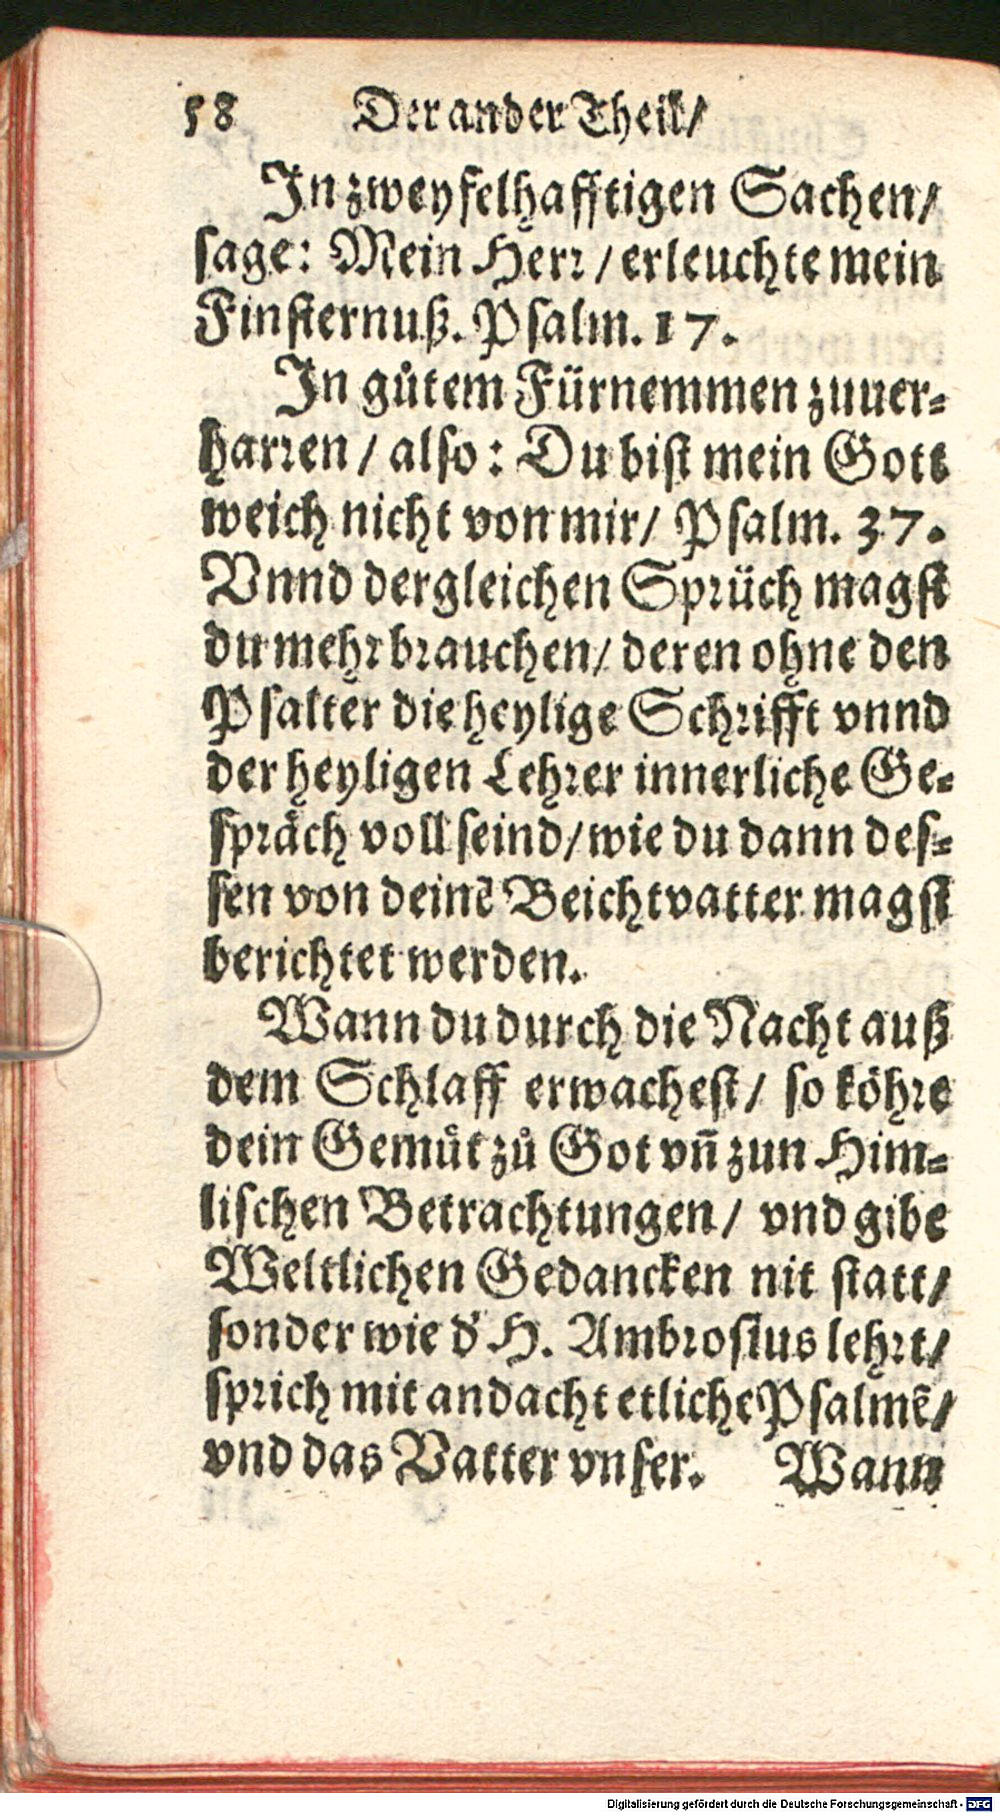 58 Der ander Theil/
In zweyfelhafftigen Sachen/
sage: Mein Herr / erleuchte mein
Finsternuß. Psalm. 17.
In gůtem Fürnemmen zuuer-
harren / also: Du bist mein Gott
weich nicht von mir/ Psalm. 37.
Vnnd dergleichen Sprüch magst
du mehr brauchen/ deren ohne den
Psalter die heylige Schrifft vnnd
der heyligen Lehrer innerliche Ge-
spräch voll seind/ wie du dann des-
sen von deinē Beichtvatter magst
berichtet werden.
Wann du durch die Nacht auß
dem Schlaff erwachest/ so köhre
dein Gemüt zů Got vñ zun Him-
lischen Betrachtungen/ vnd gibe
Weltlichen Gedancken nit statt/
sonder wie d' H. Ambrosius lehrt/
sprich mit andacht etliche Psalmē/
vnd das Vatter vnser. Wann
Digitalisierung gefördert durch die Deutsche Forschungsgemeinschaft - DFG